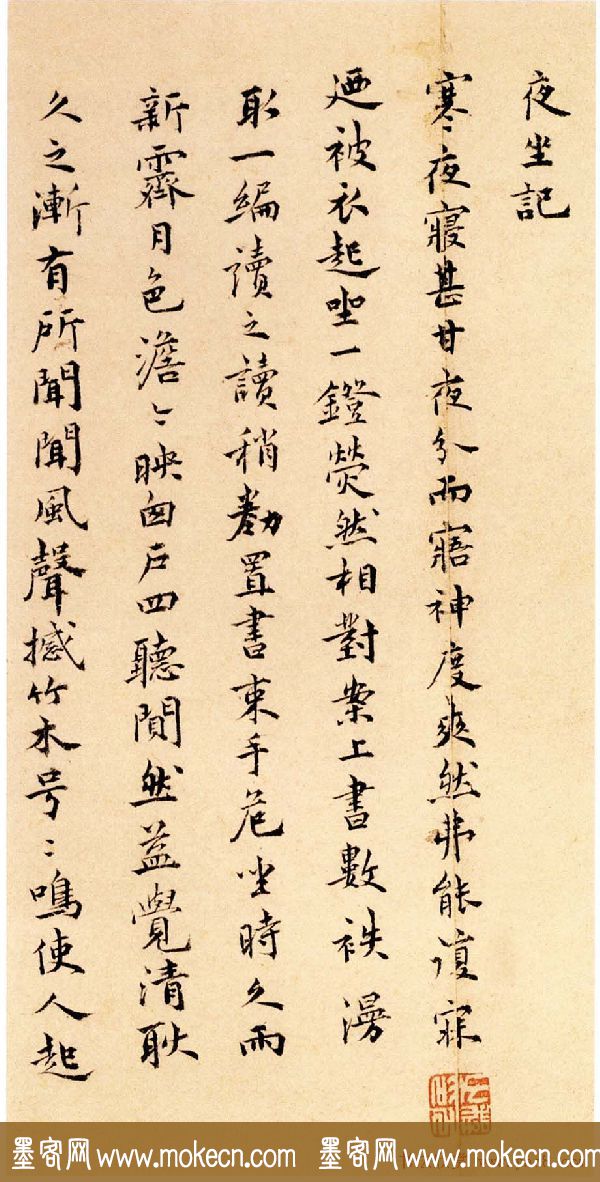 夜坐記
寒夜寢甚甘夜分而寤神度爽然弗能復寐
迺被衣起坐一鐙熒然相對案上書數袠漫
取一編讀之讀稍勌置書束手危坐時久雨
新霽月色澹〻映囪戶四聽閴然蓋覺清耿
久之漸有所聞聞風聲撼竹木号〻鳴使人起
墨客网 www.mokecn.com 墨客网 www.mokecn.com